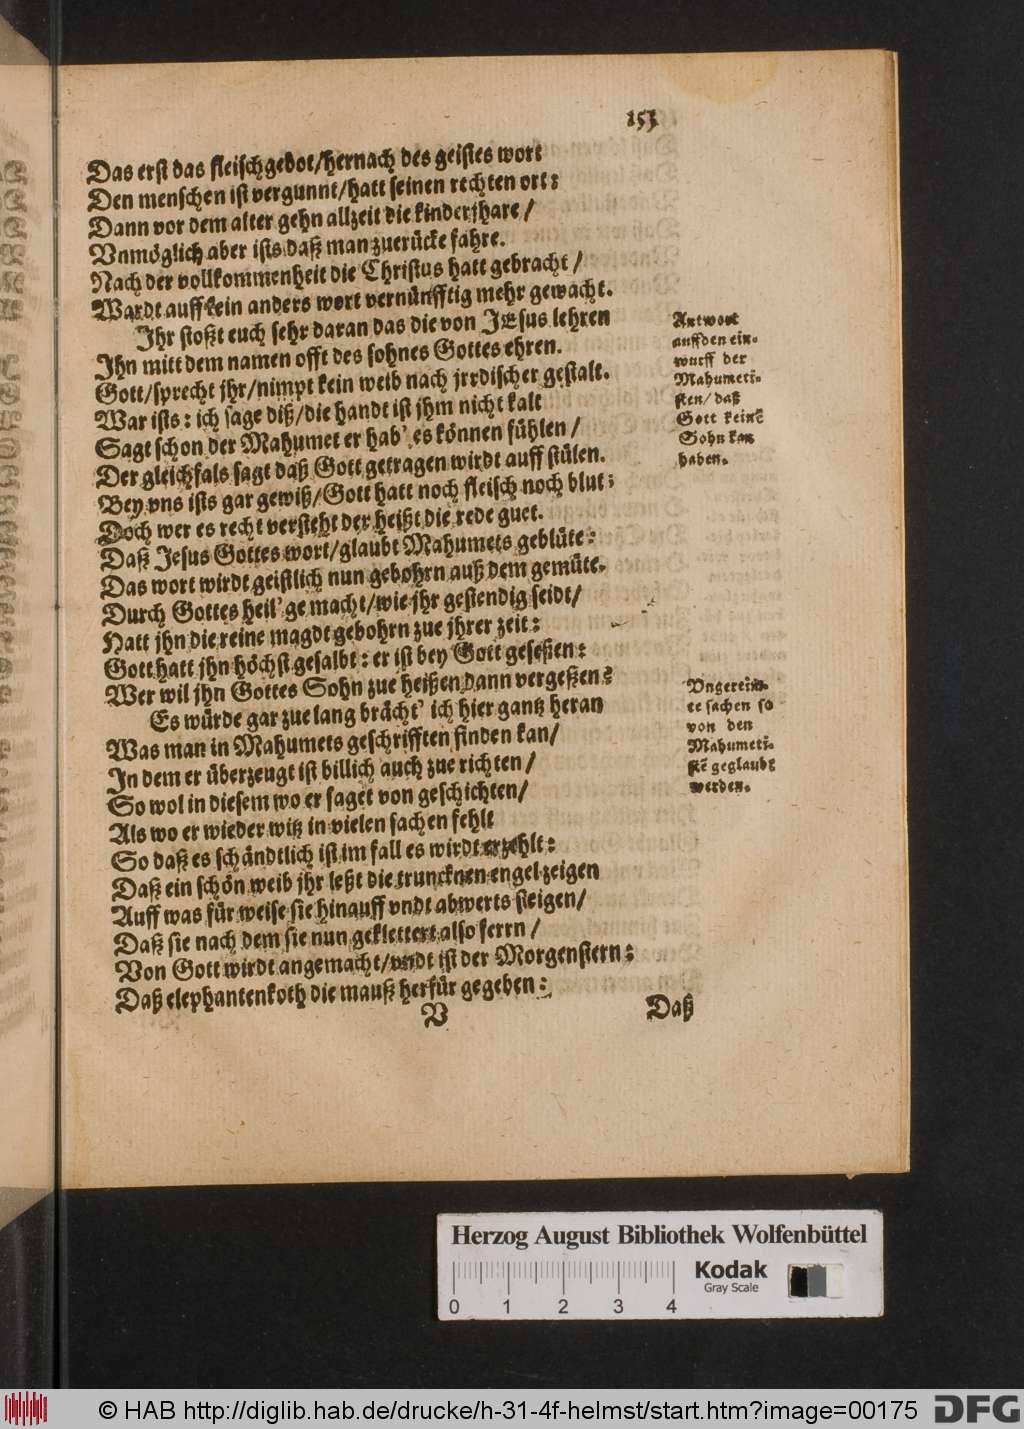 153
Das erst das fleischgebot/hernach des geistes wort
Den menschen ist vergunnt/hatt seinen rechten ort:
Dann vor dem alter gehn allzeit die kinderjhare/
Vnmöglich aber ists daß man zuerücke fahre.
Nach der vollkommenheit die Christus hatt gebracht/
Wardt auff kein anders wort vernünfftig mehr gewacht.
Ihr stoßt euch sehr daran das die von JEsus lehren
Ihn mitt dem namen offt des sohnes Gottes ehren.
Gott/sprecht jhr/nimpt kein weib nach jrrdischer gestalt.
War ists: ich sage diß/die handt ist jhm nicht kalt
Sagt schon der Mahumet er hab' es können fühlen/
Der gleichfals sagt daß Gott getragen wirdt auff stülen.
Bey vns ists gar gewiß/Gott hatt noch fleisch noch blut;
Doch wer es recht versteht der heißt die rede guet.
Daß Jesus Gottes wort/glaubt Mahumets geblüte:
Das wort wirdt geistlich nun gebohrn auß dem gemüte.
Durch Gottes heil'ge macht/wie jhr gestendig seidt/
Hatt jhn die reine magdt gebohrn zue jhrer zeit:
Gott hatt jhn höchst gesalbt: er ist bey Gott geseßen:
Wer wil jhn Gottes Sohn zue heißen dann vergeßen?
Es würde gar zue lang brächt' ich hier gantz heran
Was man in Mahumets geschrifften finden kan/
In dem er überzeugt ist billich auch zue richten/
So wol in diesem wo er saget von geschichten/
Als wo er wieder witz in vielen sachen fehlt
So daß es schändtlich ist im fall es wirdt erzehlt:
Daß ein schön weib jhr leßt die truncknen engel zeigen
Auff was für weise sie hinauff vndt abwerts steigen/
Daß sie nach dem sie nun geklettert also ferrn/
Von Gott wirdt angemacht/vndt ist der Morgenstern:
Daß elephantenkoth die mauß herfür gegeben:
V Daß
Antwort
auff den ein-
wurff der
Mahumeti-
sten/daß
Gott keinẽ
Sohn kan
haben.
Vngereim-
te sachen so
von den
Mahumeti-
stẽ geglaubt
werden.
Herzog August Bibliothek Wolfenbüttel
Kodak
Gray Scale
0 1 2 3 4
© HAB http://diglib.hab.de/drucke/h-31-4f-helmst/start.htm?image=00175
DFG